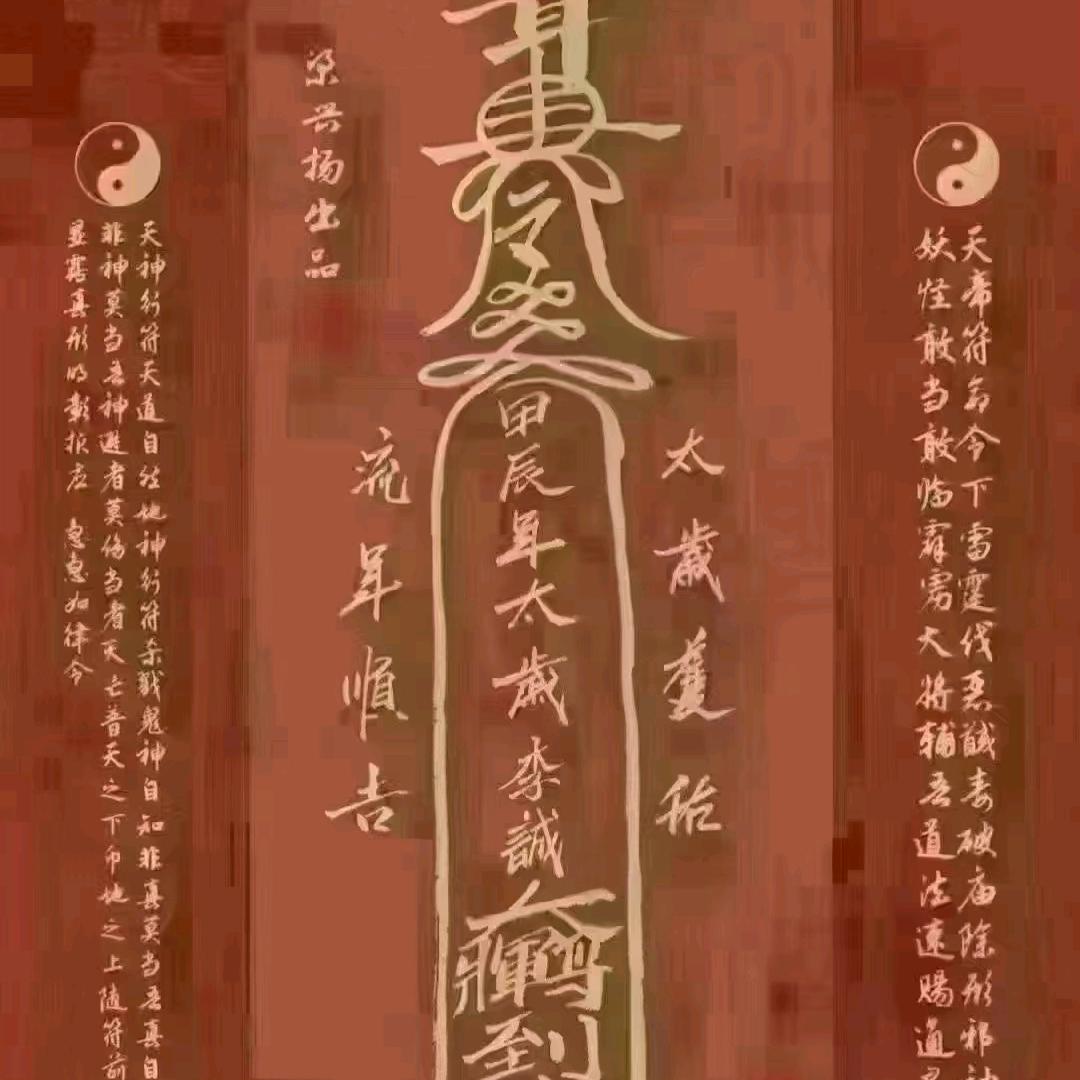 天帝符命令下雷霆伐恶馘毒破庙除形邪
妖怪敢当敢临霹雳大将辅吾道法速赐道
太歲
甲辰年太歲李誠
到
流年順吉
梁兴扬出品
天神行符天道自然地神行符杀戮鬼神自知非真莫当吾真自
非神莫当吾神避者莫伤当者天亡普天之下 地之上随符前
显露真形明彰报应 急急如律令